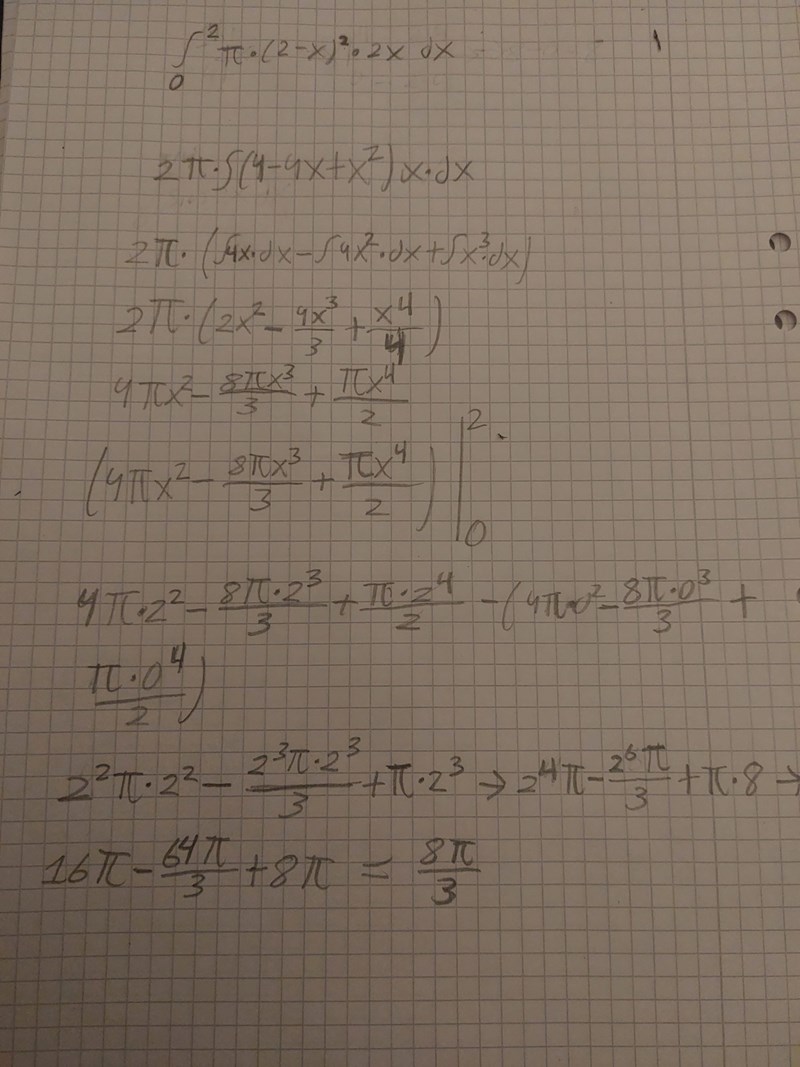 ∫₀² π·(2-x)²·2x dx - 1
2π·∫(4-4x+x²)x·dx
2π·(∫4x·dx-∫4x²·dx+∫x³·dx)
2π·(2x²-4x³/3+x⁴/4)
4πx²-8πx³/3+πx⁴/2
(4πx²-8πx³/3+πx⁴/2)|₀²
4π·2²-8π·2³/3+π·2⁴/2-(4π·0²-8π·0³/3+
π·0⁴/2)
2²π·2²-2³π·2³/3+π·2³→2⁴π-2⁶π/3+π·8→
16π-64π/3+8π=8π/3